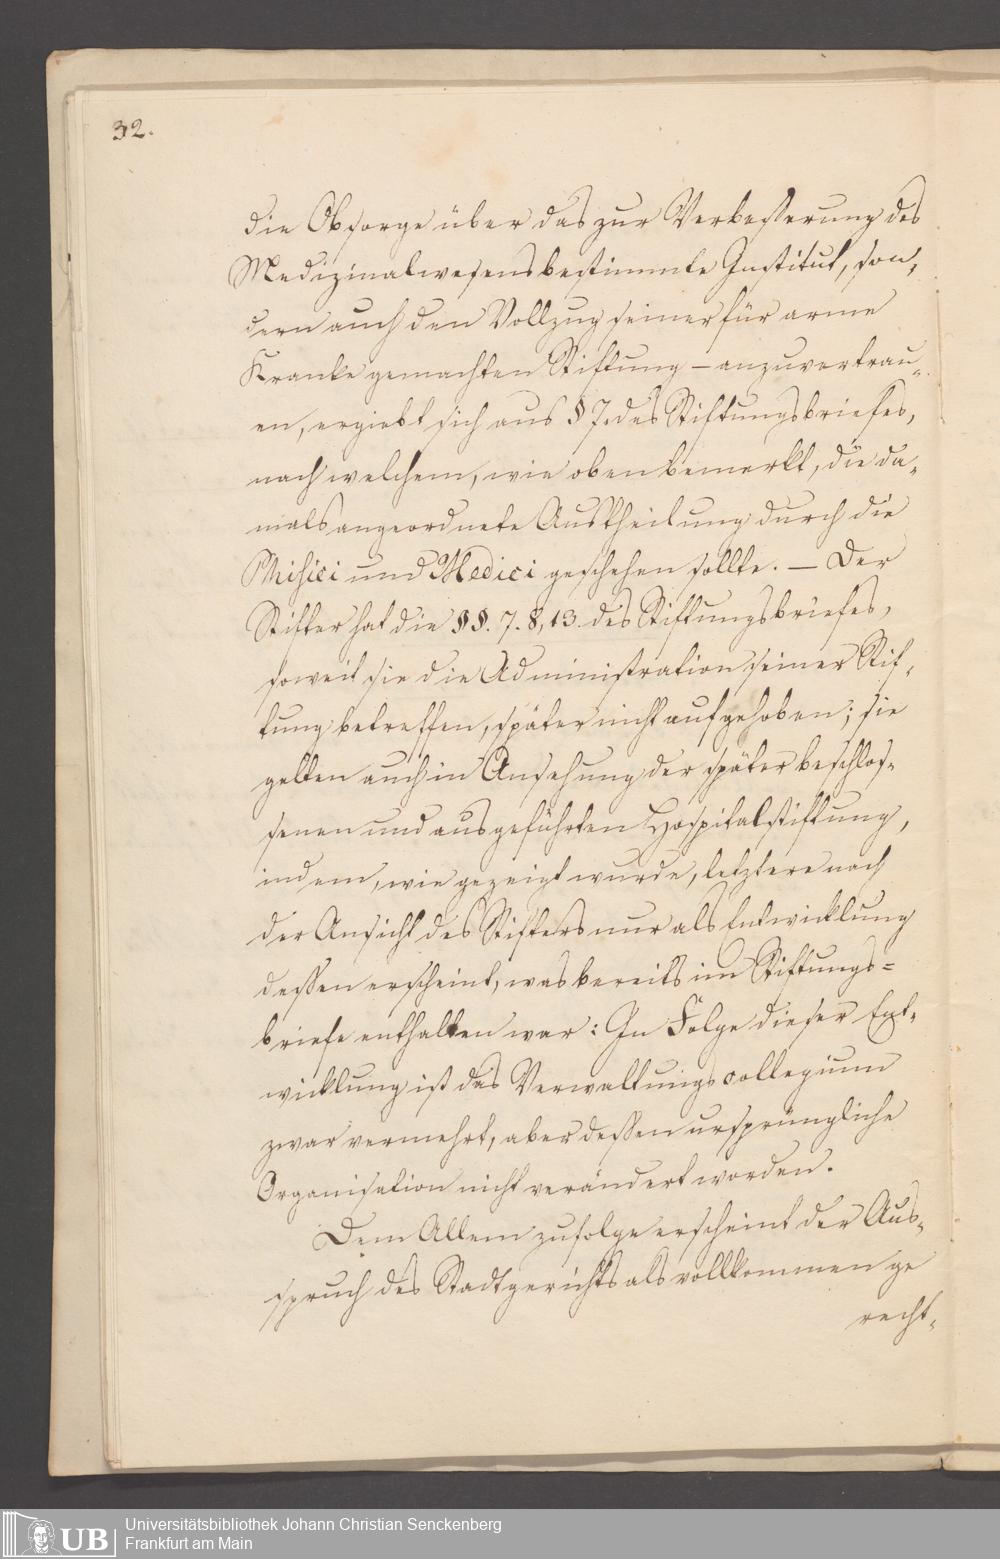 32.
die Obsorge über das zur Verbeßerung des
Medizinalwesens bestimmte Institut, son-
dern auch den Vollzug seiner für arme
Kranke gemachten Stiftung – anzuvertrau-
en, ergiebt sich aus § 7. des Stiftungsbriefes,
nach welchem, wie oben bemerkt, die da-
mals angeordnete Austheilung durch die
Phisici und Medici geschehen sollte. – Der
Stifter hat die §§. 7. 8, 13. des Stiftungsbriefes,
soweit sie die Administration seiner Stif-
tung betreffen, später nicht aufgehoben; sie
gelten auch in Ansehung der später beschlos-
senen und ausgeführten Hospitalstiftung,
indem, wie gezeigt wurde, letztere nach
der Ansicht des Stifters nur als Entwicklung
deßen erscheint, was bereits im Stiftungs-
briefe enthalten war: In Folge dieser Ent-
wicklung ist das Verwaltungscollegium
zwar vermehrt, aber deßen ursprüngliche
Organisation nicht verändert worden.
Dem Allem zufolge erscheint der Aus-
spruch des Stadtgerichts als vollkommen ge
recht-
UB
Universitätsbibliothek Johann Christian Senckenberg
Frankfurt am Main